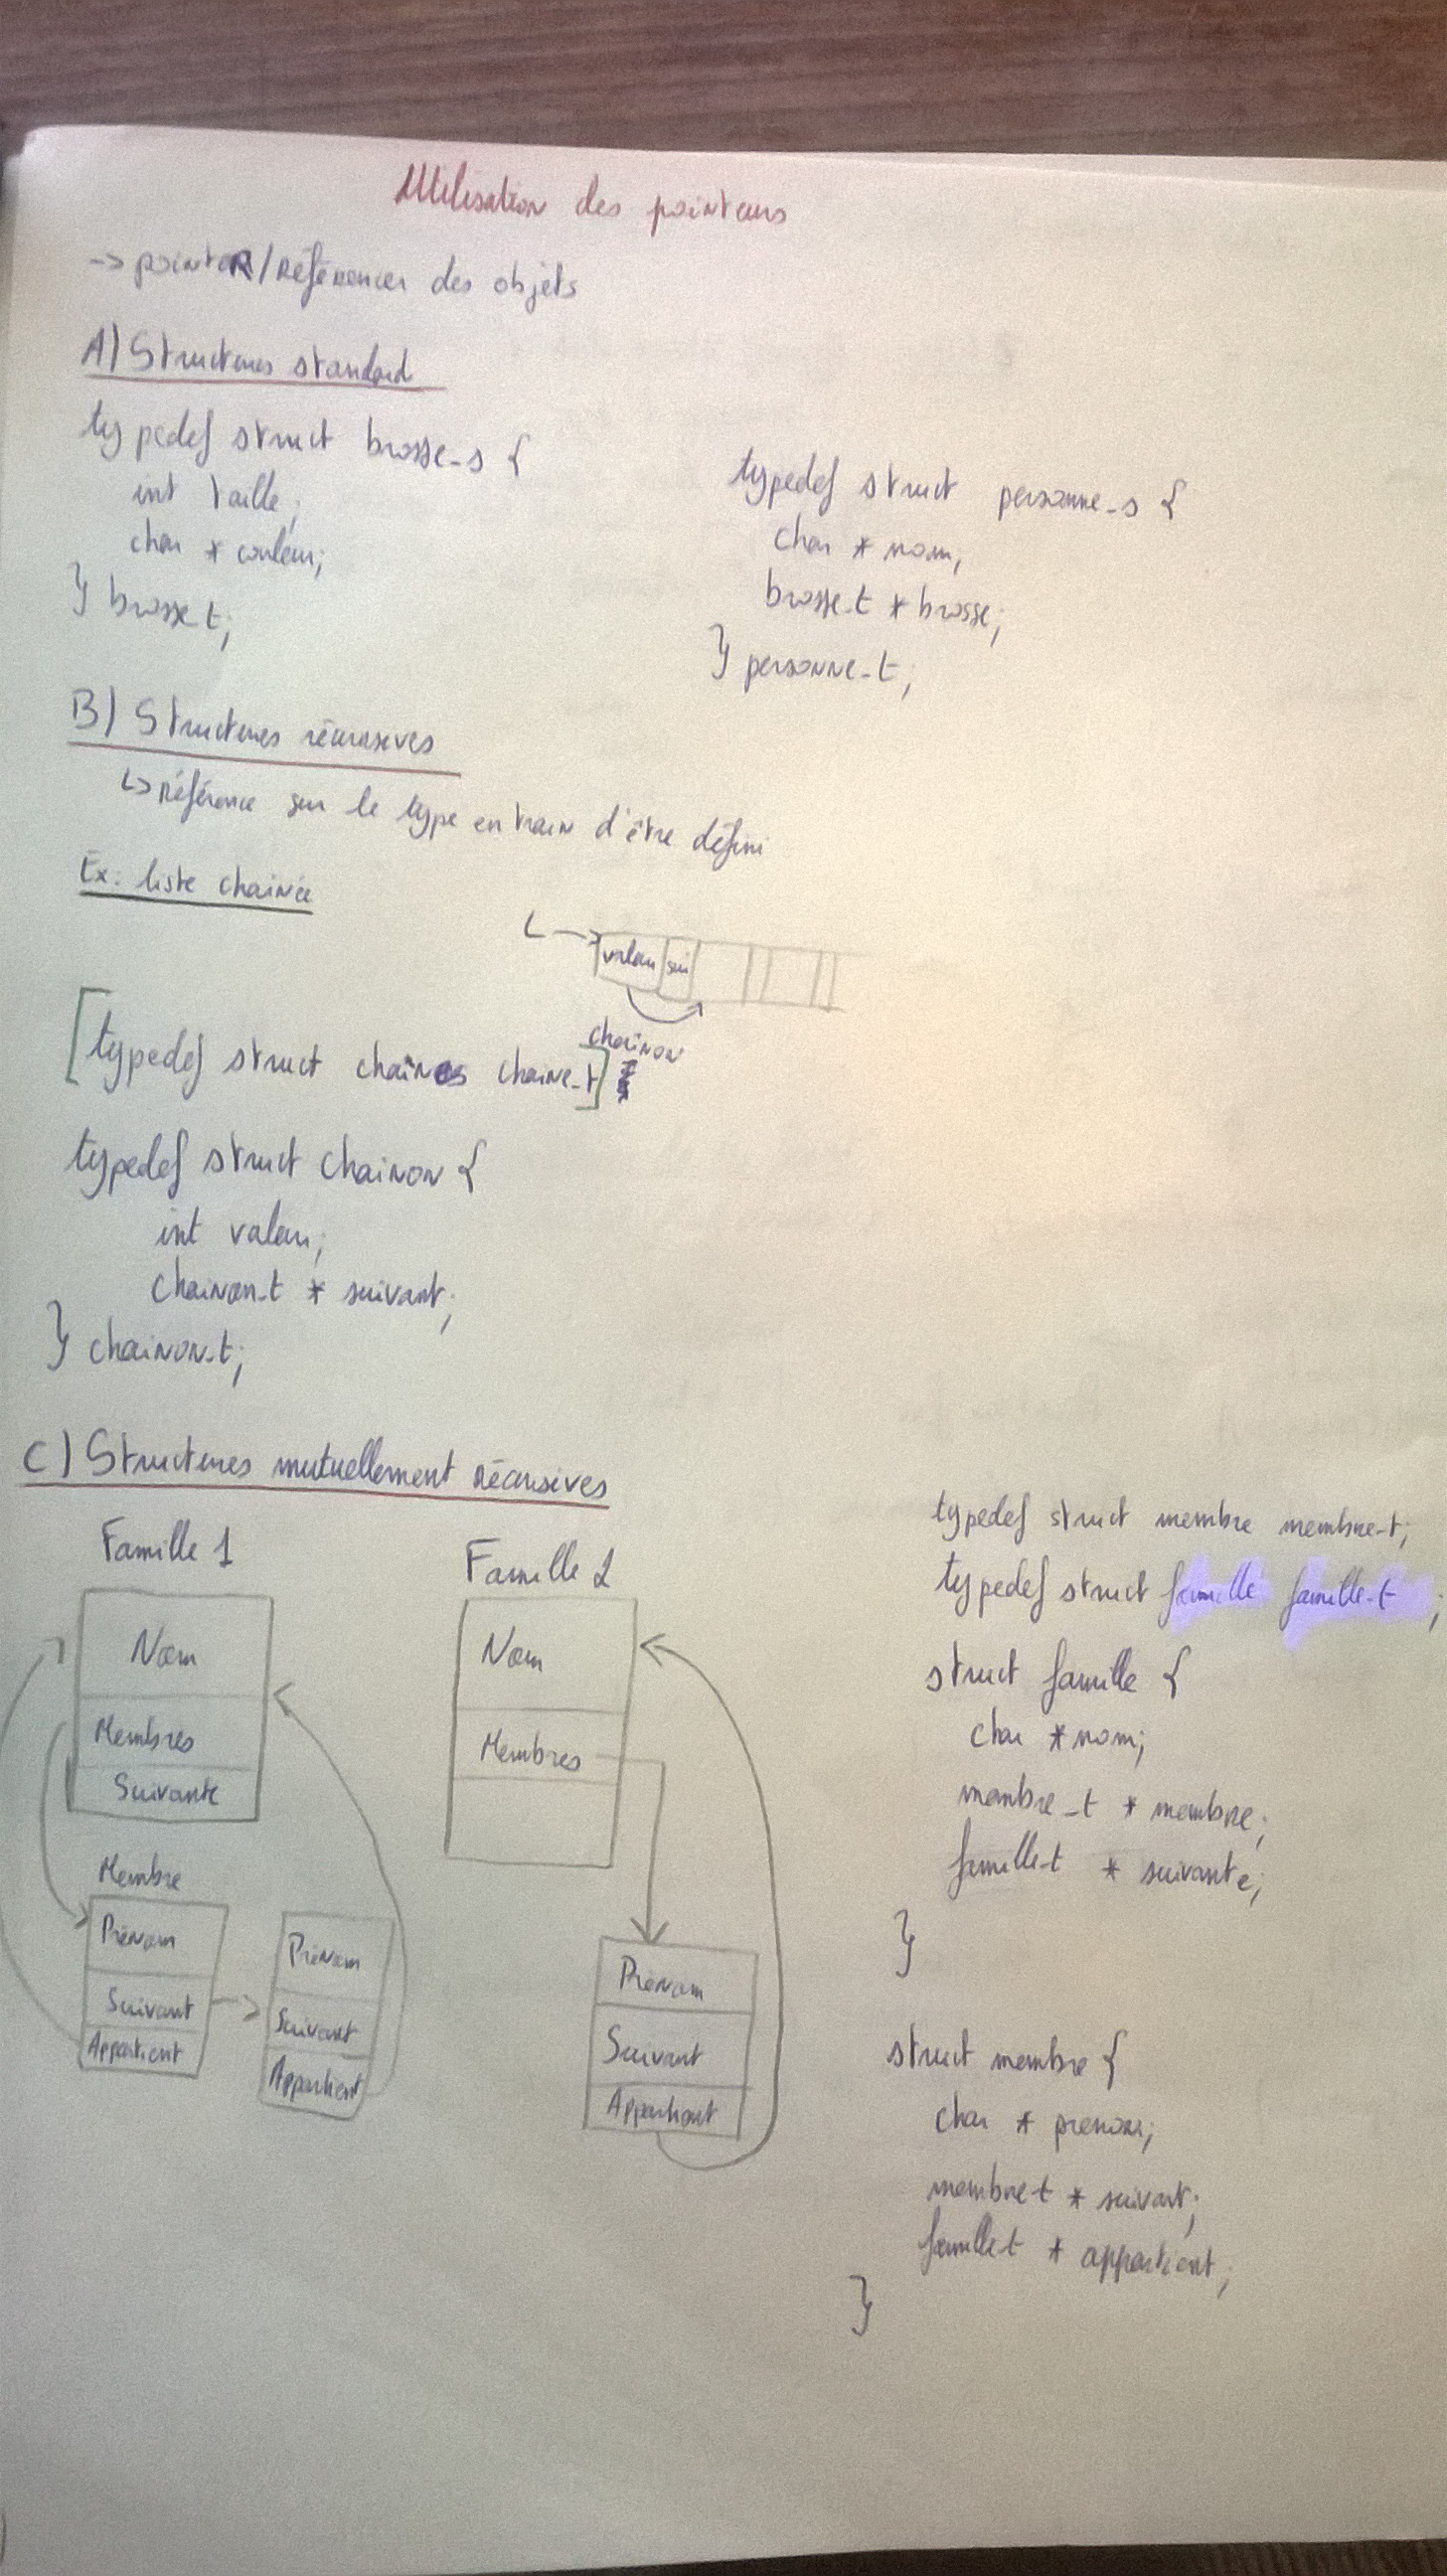 Utilisation des pointeurs
-> pointeR/Référencer des objets
A) Structures standard
typedef struct brosse_s {
int taille;
char * couleur;
} brosse_t;
typedef struct personne_s {
char * nom;
brosse_t * brosse;
} personne_t;
B) Structures récursives
↳ Référence sur le type en train d'être défini
Ex: liste chainée
L ->
valeur sui
chainon
[typedef struct chaines chaine_t]
typedef struct chainon {
int valeur;
chainon_t * suivant;
} chainon_t;
C) Structures mutuellement récursives
Famille 1
Nom
Membres
Suivante
Membre
Prénom
Suivant
Appartient
Prénom
Suivant
Appartient
Famille 2
Nom
Membres
Prénom
Suivant
Appartient
typedef struct membre membre_t;
typedef struct famille famille_t ;
struct famille {
char *nom;
membre_t * membre;
famille_t * suivante;
}
struct membre {
char * prenom;
membre_t * suivant;
famille_t * appartient;
}